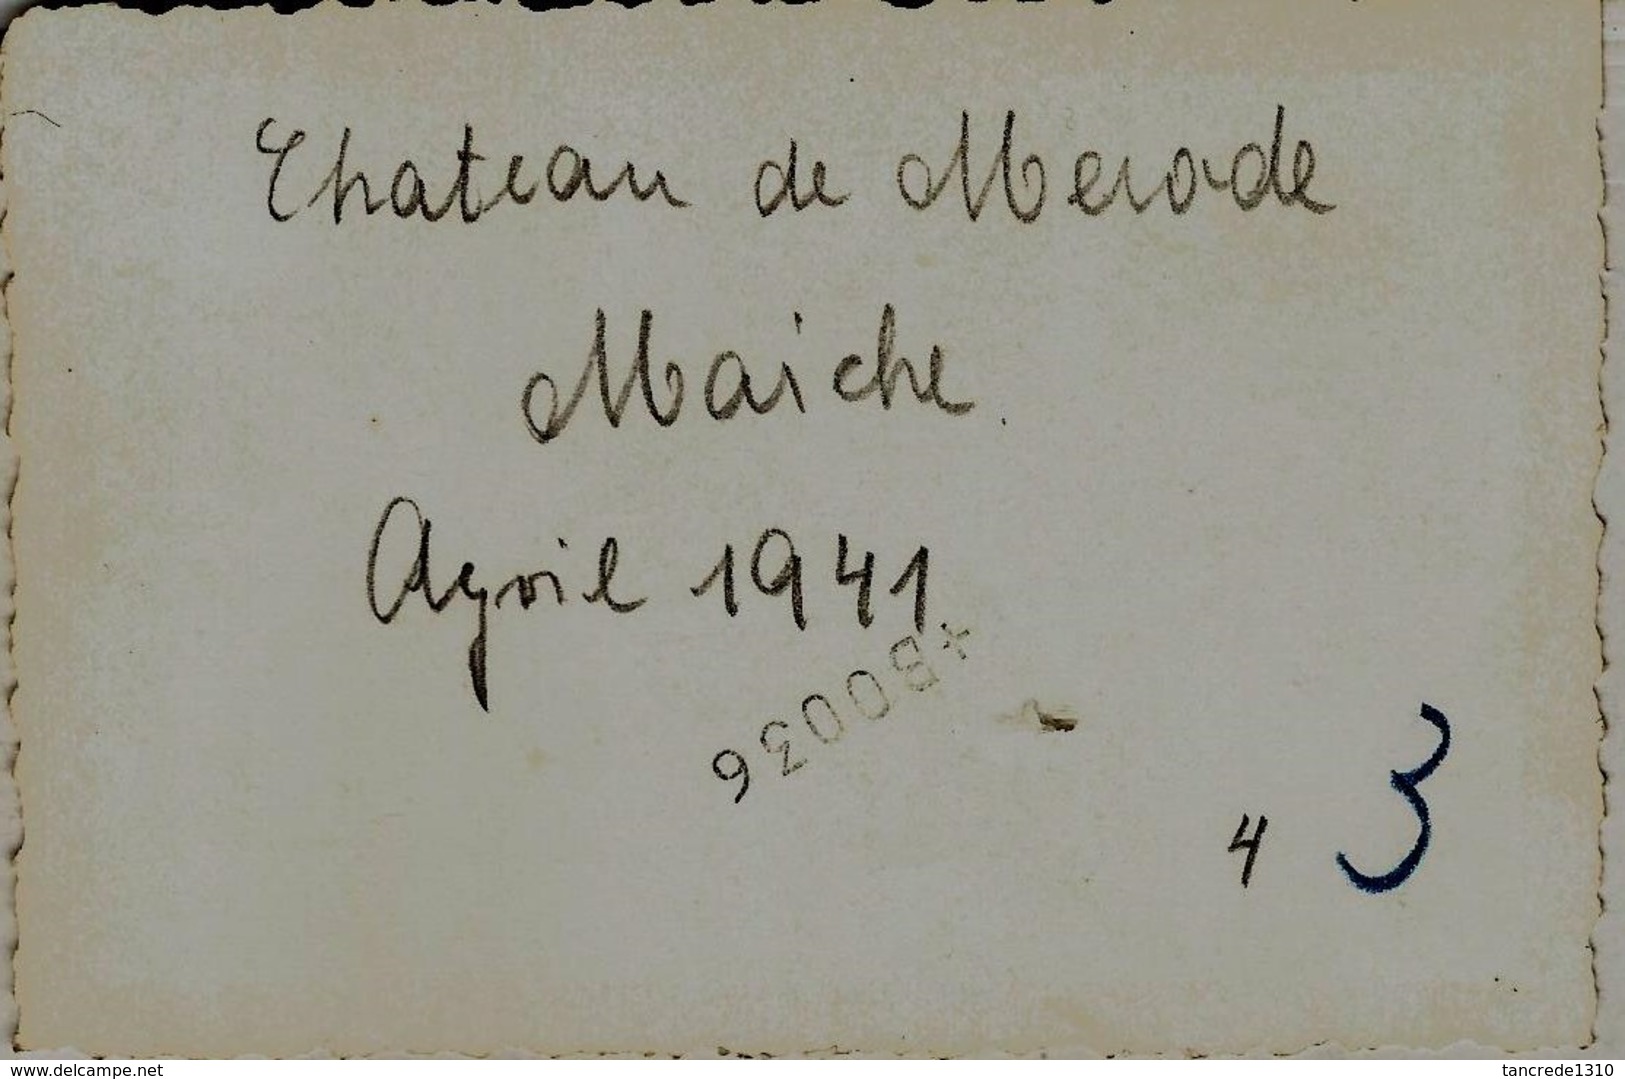 Chateau de Merode
Maiche
Agril 1941
+B0036
4 3
www.delcampe.net
tancrede1310